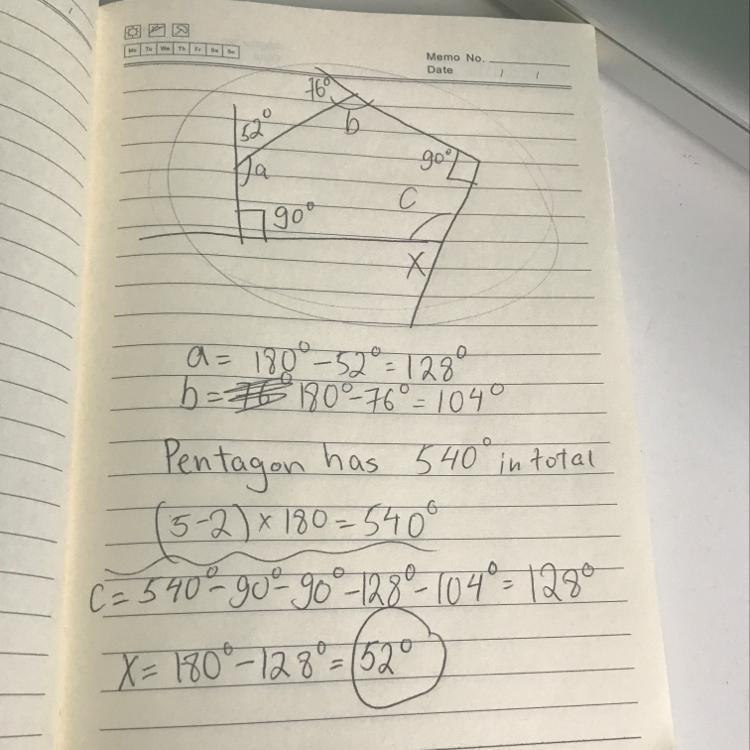 Mo Tu We Th Fr Sa Su
Memo No.
Date / /
76°
52°
b
a
90°
90°
C
X
a = 180° - 52° = 128°
b = 180° - 76° = 104°
Pentagon has 540° in total
(5-2) × 180 = 540°
C = 540° - 90° - 90° - 128° - 104° = 128°
X = 180° - 128° = 52°